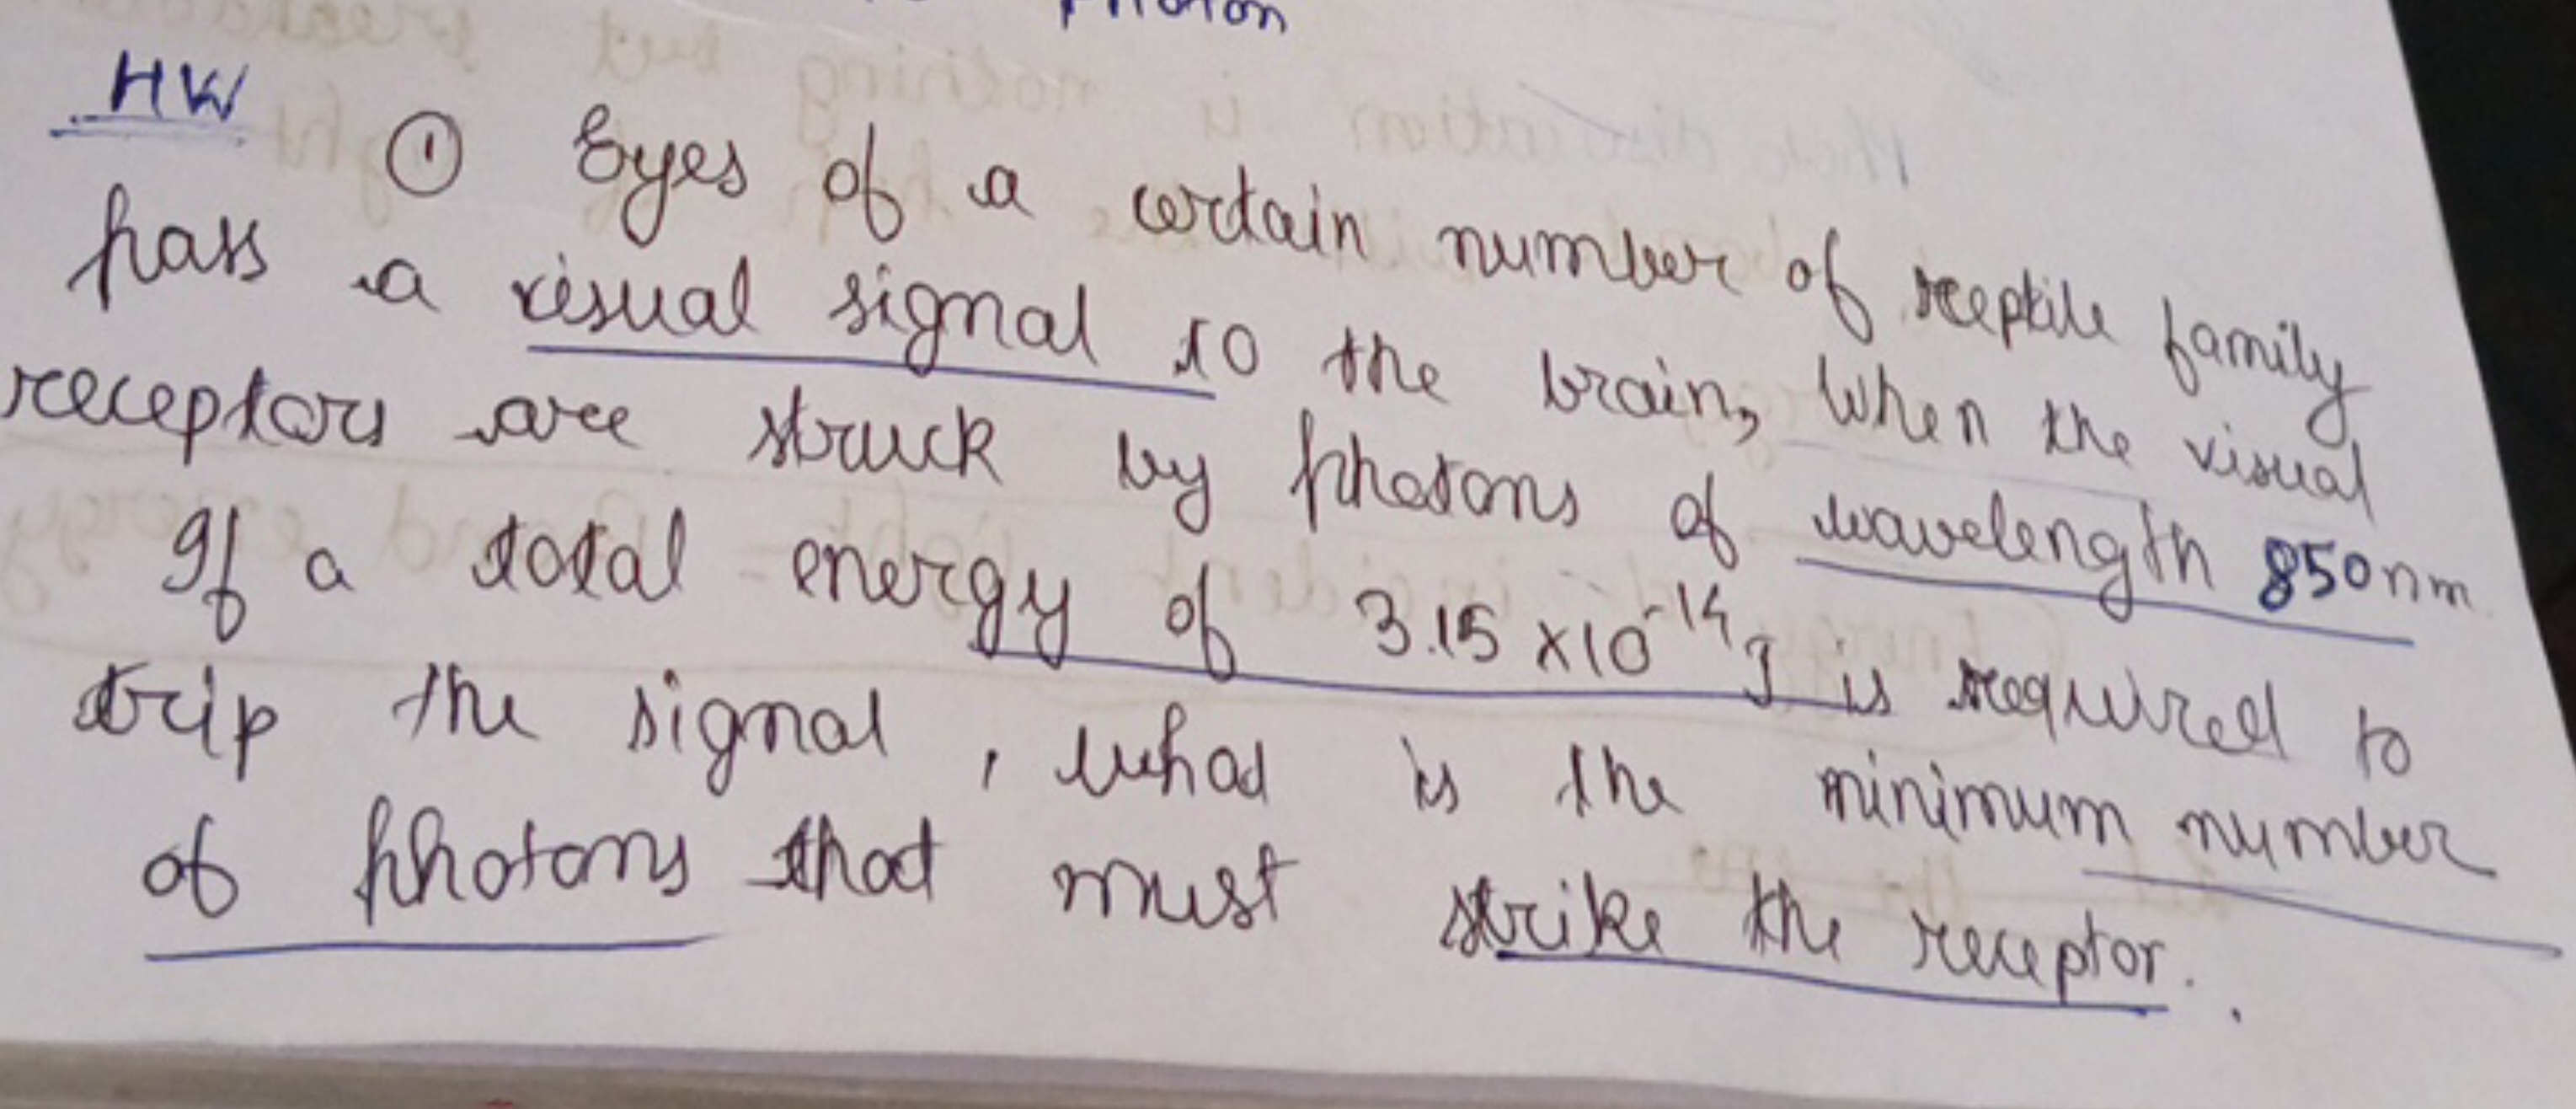 photon
HW
① Eyes of a certain number of reeptile family
pass a visual signal to the brain, when the visual
receptors are struck by photons of wavelength 850nm
If a total energy of 3.15 x10⁻¹⁴J is required to
trip the signal, what is the minimum number
of photons that must strike the receptor.